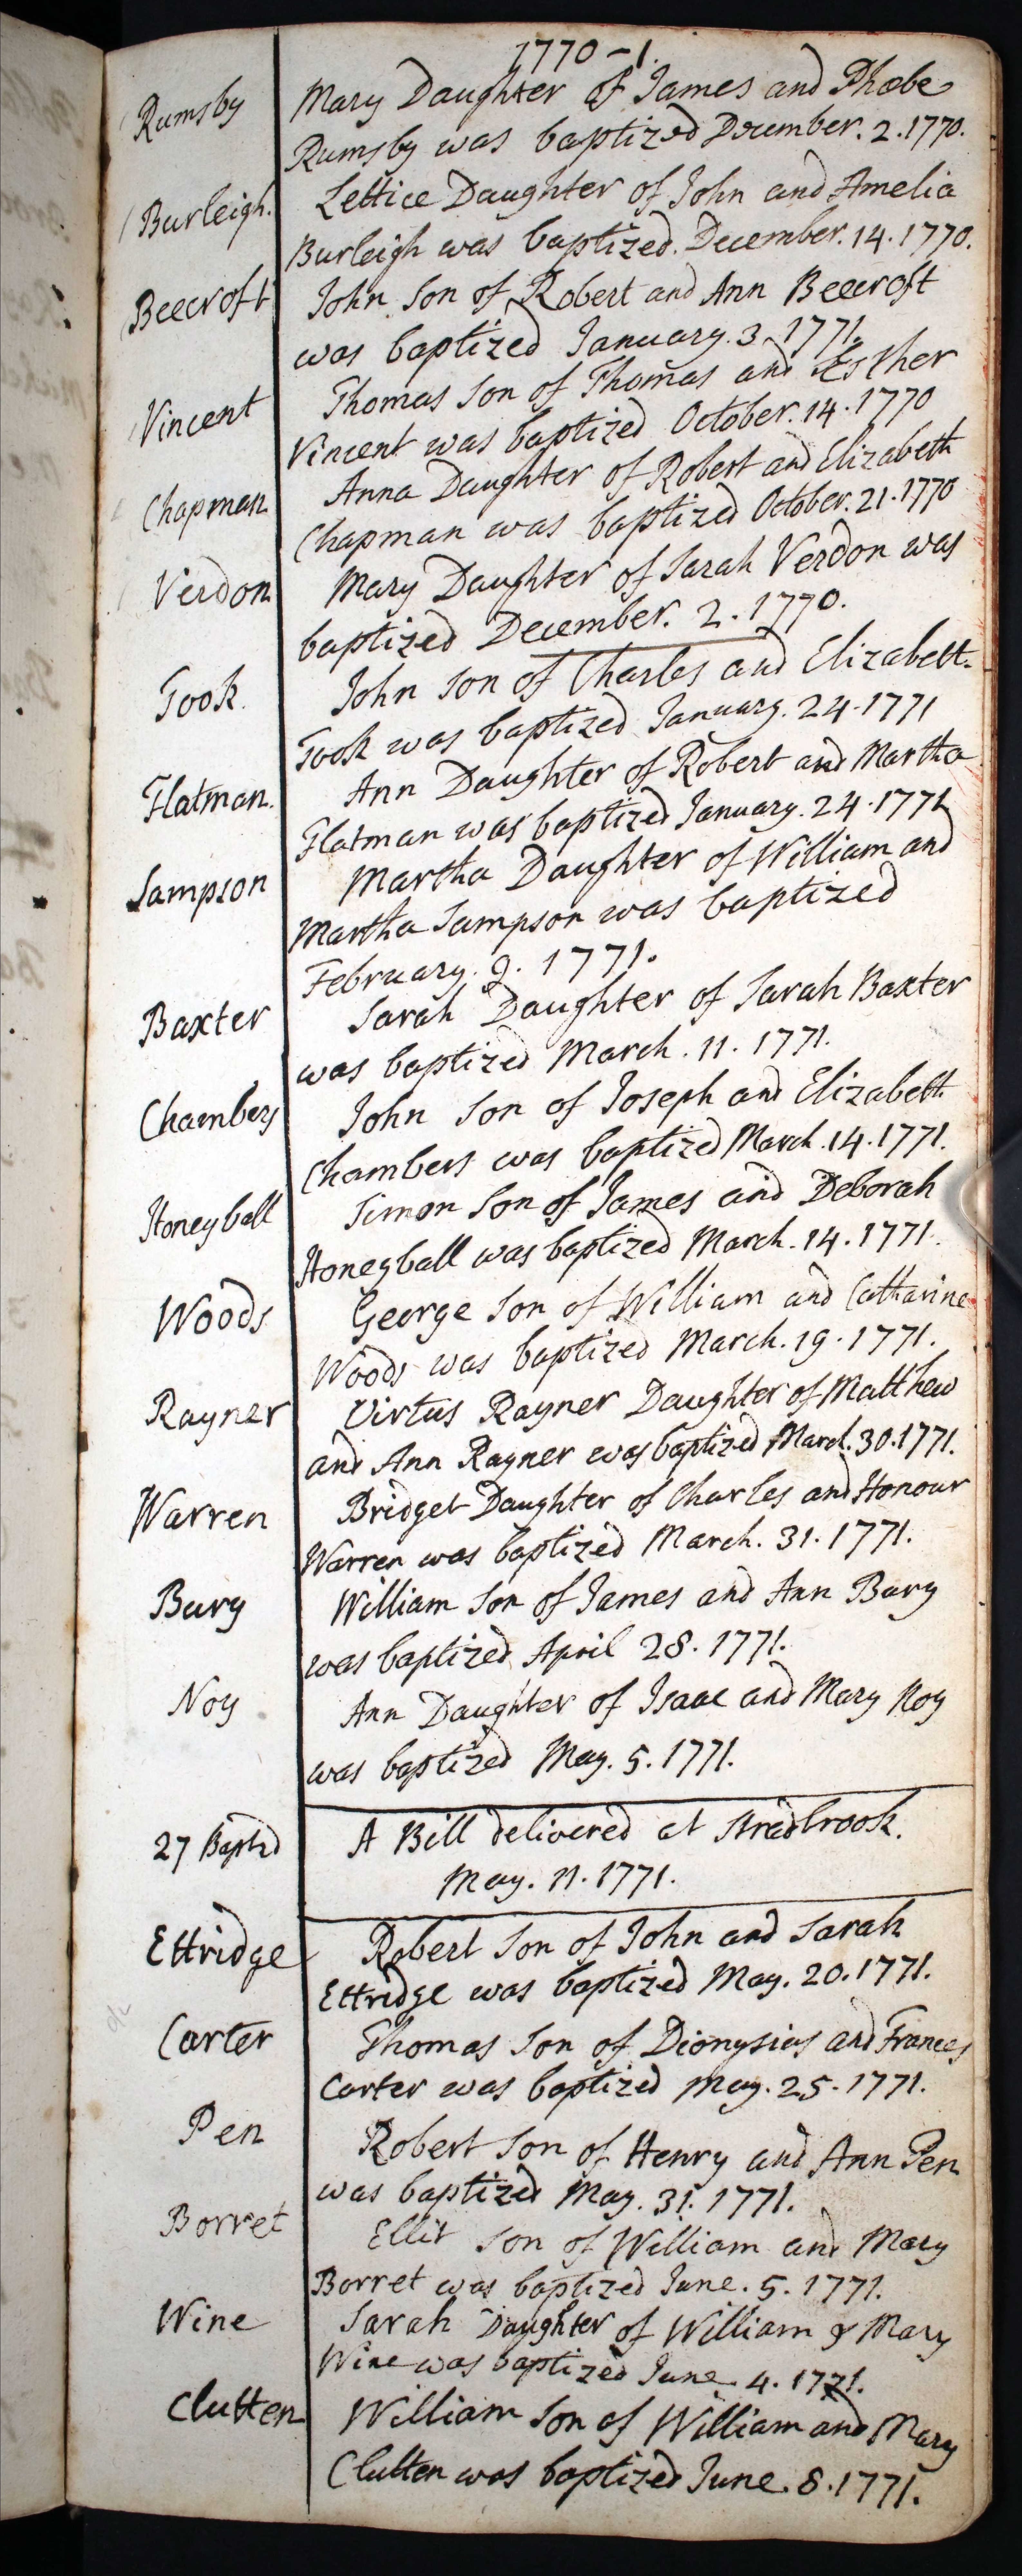 1770-1.
Rumsby
Mary Daughter of James and Phœbe
Rumsby was baptized December. 2. 1770.
Burleigh.
Lettice Daughter of John and Amelia
Burleigh was baptized. December. 14. 1770.
Beecroft
John Son of Robert and Ann Beecroft
was baptized January. 3. 1771.
Vincent
Thomas Son of Thomas and Esther
Vincent was baptized October. 14. 1770
Chapman
Anna Daughter of Robert and Elizabeth
Chapman was baptized October. 21. 1770
Verdon
Mary Daughter of Sarah Verdon was
baptized December. 2. 1770.
Took.
John Son of Charles and Elizabeth
Took was baptized January. 24. 1771
Flatman.
Ann Daughter of Robert and Martha
Flatman was baptized January. 24. 1771
Sampson
Martha Daughter of William and
Martha Sampson was baptized
February. 2. 1771.
Baxter
Sarah Daughter of Sarah Baxter
was baptized March. 11. 1771.
Chambers
John Son of Joseph and Elizabeth
Chambers was baptized March. 14. 1771.
Honeyball
Simon Son of James and Deborah
Honeyball was baptized March. 14. 1771.
Woods
George Son of William and Catharine
Woods was baptized March. 19. 1771.
Rayner
Virtus Rayner Daughter of Matthew
and Ann Rayner was baptized March. 30. 1771.
Warren
Bridget Daughter of Charles and Honour
Warren was baptized March. 31. 1771.
Bury
William Son of James and Ann Bury
was baptized April 28. 1771.
Noy
Ann Daughter of Isaac and Mary Noy
was baptized May. 5. 1771.
27 Baptzd
A Bill delivered at Stradbrook.
May. 11. 1771.
Ettridge
Robert Son of John and Sarah
Ettridge was baptized May. 20. 1771.
Carter
Thomas Son of Dionysius and Frances
Carter was baptized May. 25. 1771.
Pen
Robert Son of Henry and Ann Pen
was baptized May. 31. 1771.
Borret
Ellit Son of William and Mary
Borret was baptized June. 5. 1771.
Wine
Sarah Daughter of William & Mary
Wine was baptized June. 4. 1771.
Clutten
William Son of William and Mary
Clutten was baptized June. 8. 1771.